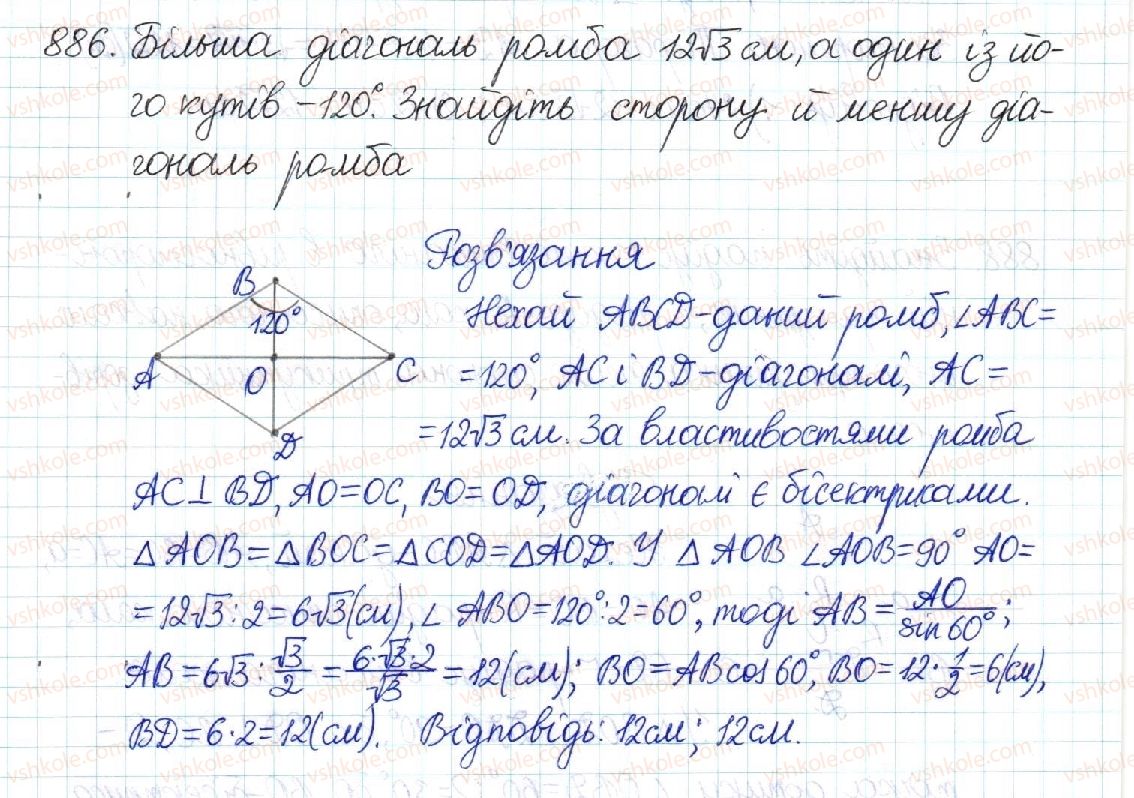 886. Більша діагональ ромба 12√3 см, а один із йо-
го кутів – 120°. Знайдіть сторону й меншу діа-
гональ ромба
Розв'язання
B
120°
A
O
C
D
Нехай ABCD – даний ромб, ∠ABC =
= 120°, AC і BD – діагоналі, AC =
= 12√3 см. За властивостями ромба
AC ⊥ BD, AO = OC, BO = OD, діагоналі є бісектрисами.
△AOB = △BOC = △COD = △AOD. У △AOB ∠AOB = 90° AO =
= 12√3 : 2 = 6√3 (см), ∠ABO = 120° : 2 = 60°, тоді AB = AO / sin 60°;
AB = 6√3 : √3/2 = 6·√3·2 / √3 = 12 (см); BO = AB cos 60°, BO = 12 · 1/2 = 6 (см),
BD = 6 · 2 = 12 (см). Відповідь: 12 см; 12 см.